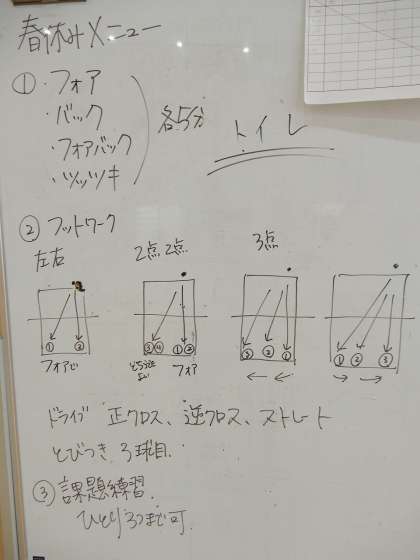 春休みメニュー
① ・フォア
・バック
・フォアバック
・ツッツキ
各5分
トイレ
② フットワーク
左右
2点2点
3点
① ②
フォアで
③ ④ ① ②
どちらでも
よい
フォア
③ ② ①
← ←
① ② ③
→ →
ドライブ 正クロス、逆クロス、ストレート
とびつき 3球目.
③ 課題練習.
ひとり3つまで可.